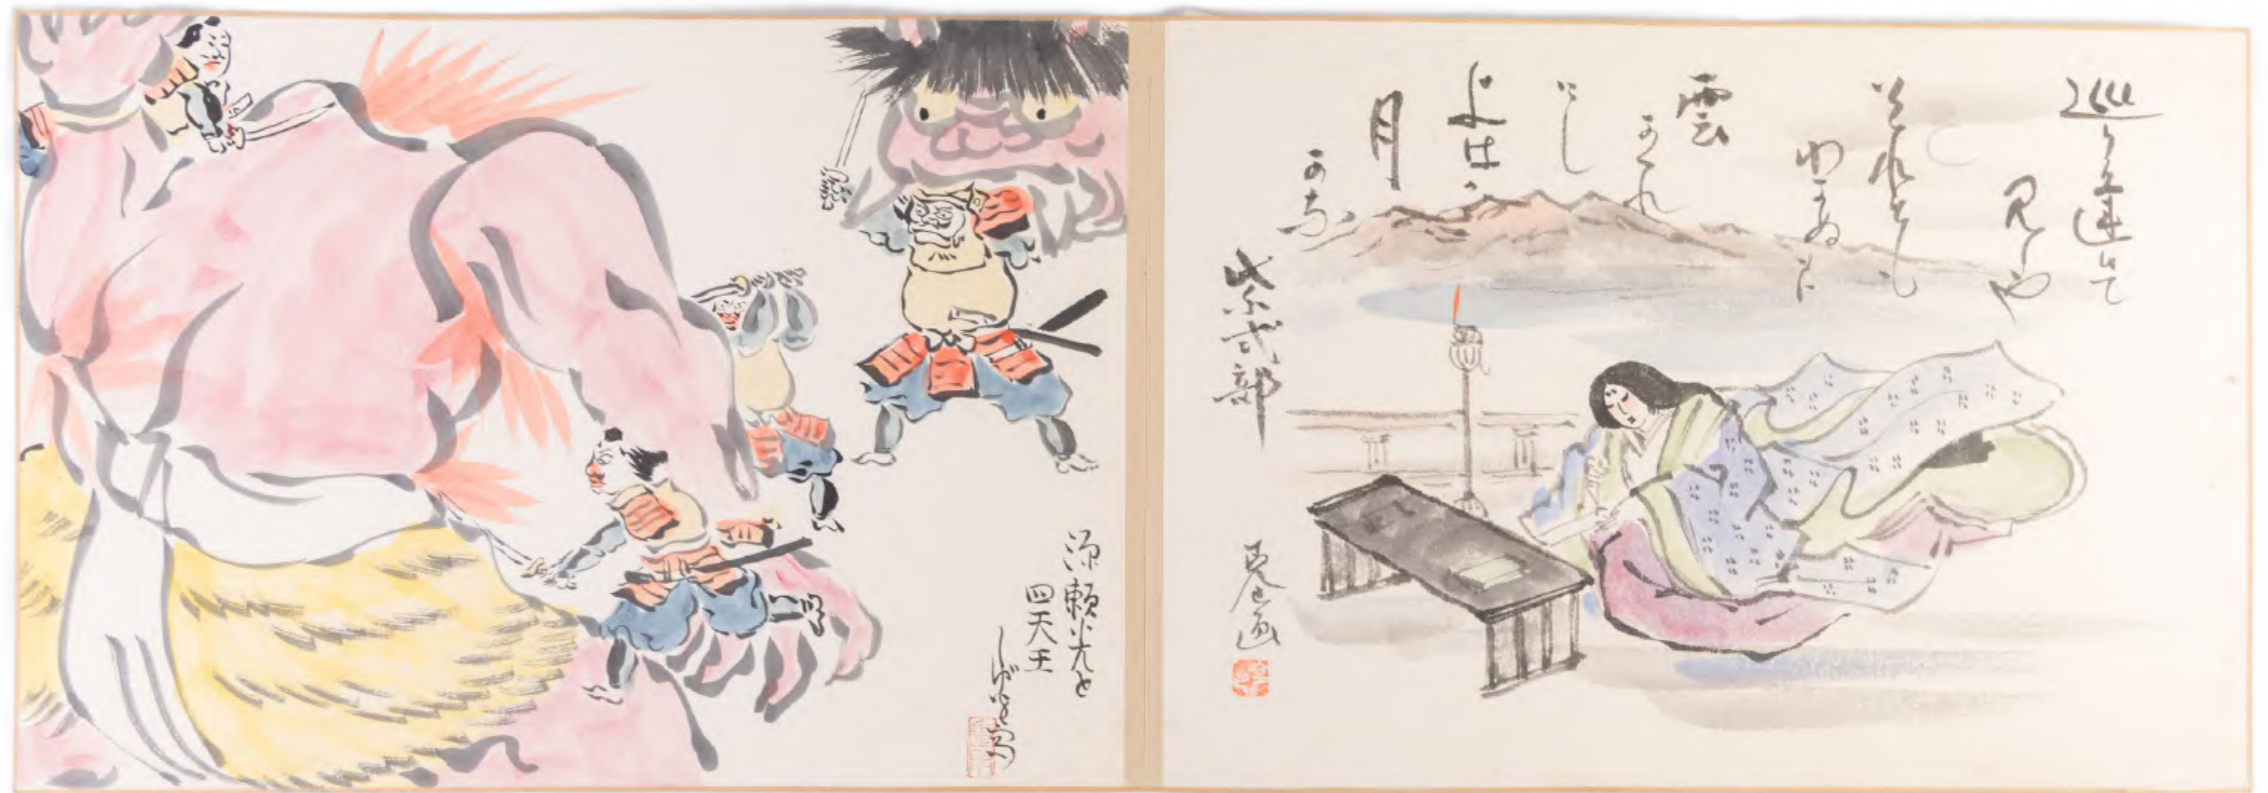 巡り逢ひて
見しや
それとも
わかぬ間に
雲
かくれ
にし
よはの
月
かな
紫式部
画
源頼光と
四天王